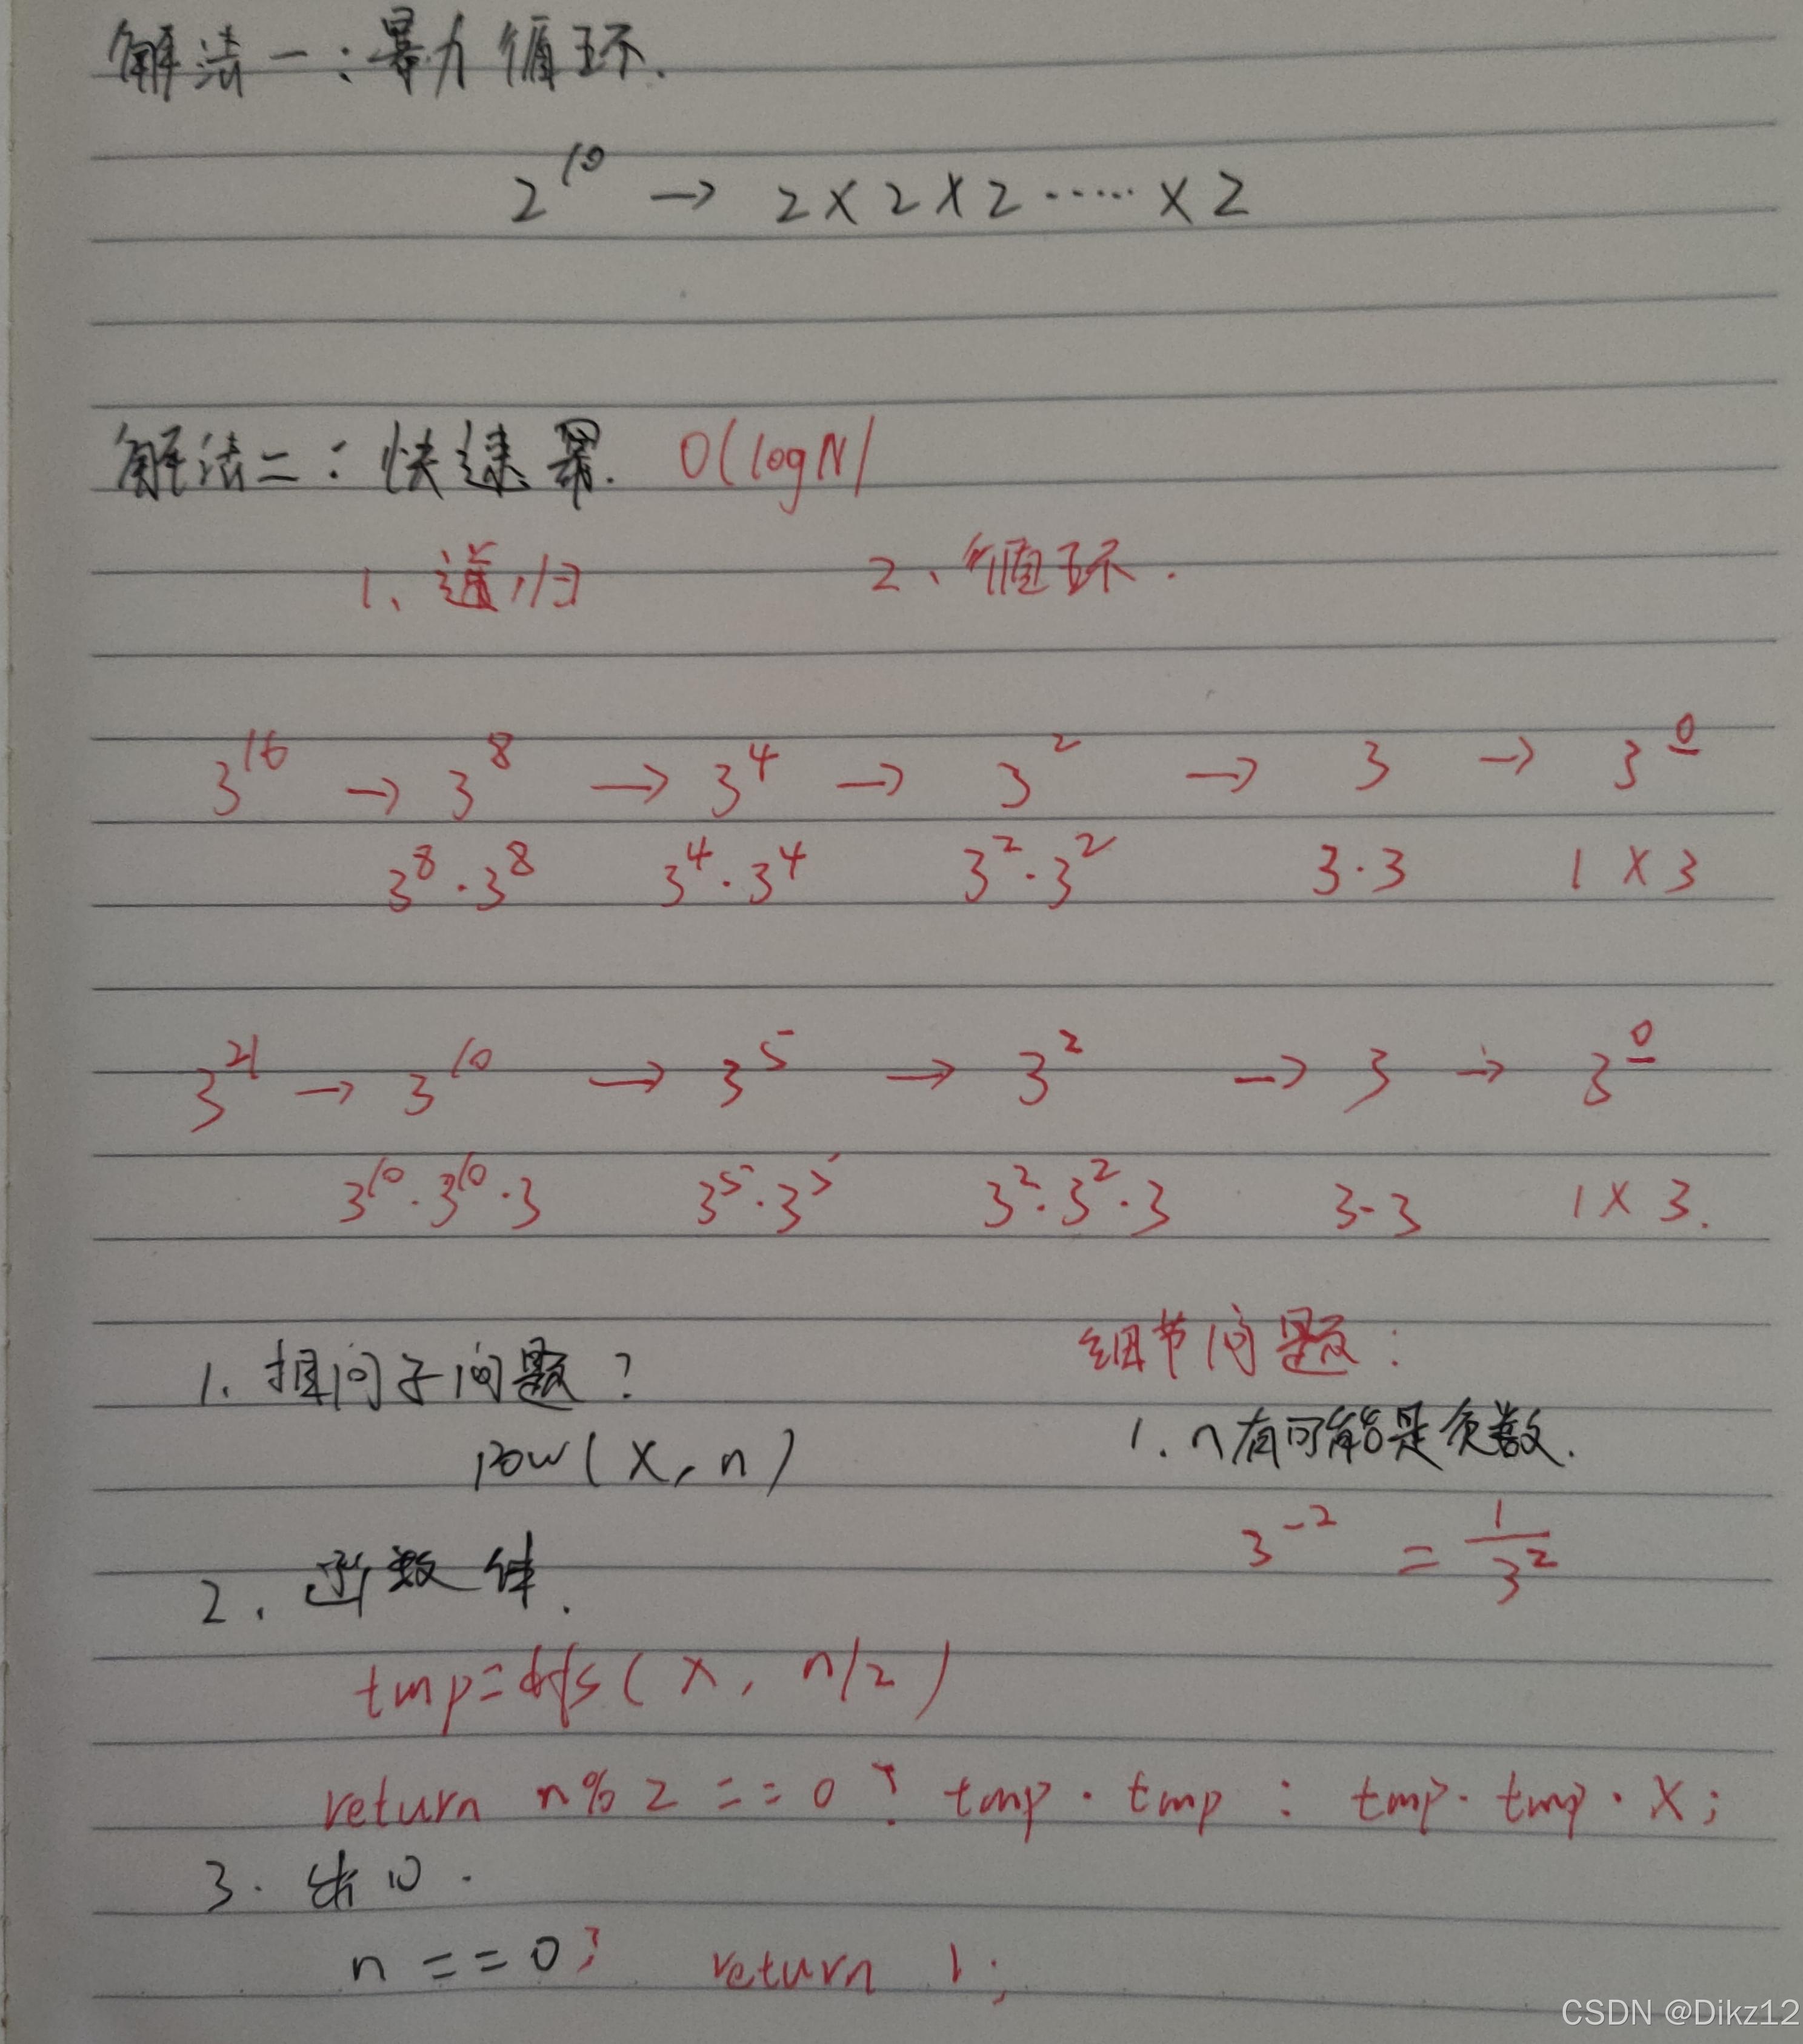 解法一：暴力循环.
2^10 → 2 × 2 × 2 ...... × 2
解法二：快速幂. O(logN)
1、递归 2、循环.
3^16 → 3^8 → 3^4 → 3^2 → 3 → 3^0
3^8 · 3^8 3^4 · 3^4 3^2 · 3^2 3 · 3 1 × 3
3^21 → 3^10 → 3^5 → 3^2 → 3 → 3^0
3^10 · 3^10 · 3 3^5 · 3^5 3^2 · 3^2 · 3 3 · 3 1 × 3.
细节问题：
1. 相同子问题？
1. n有可能是负数.
pow(x, n)
3^-2 = 1/3^2
2. 函数体.
tmp=dfs(x, n/2)
return n%2 == 0 ? tmp · tmp : tmp · tmp · x;
3. 出口.
n == 0; return 1;
CSDN @Dikz12